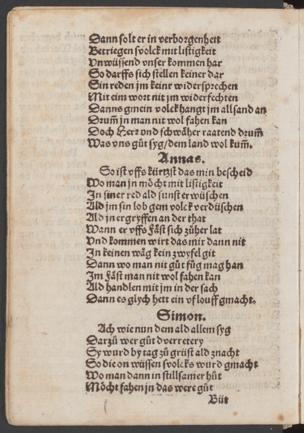 Dann solt er in verborgenheit
Betriegen svolck mit listigkeit
Unwüssend vnser kommen har
So darffs sich stellen keiner dar
Sin reden jm keinr widersprechen
Mit eim wort nit jm widerfechten
Danns gmein volck hangt jm allsand an
Drum̃ jn man nit wol fahen kan
Doch Herz vnd schwäher raatend drum̃
Was vns güt syg/dem land wol kum̃.
Annas.
So ist vffs kürtzst das min bescheid
Wo man jn möcht mit listigkeit
In siner red ald sunst erwüschen
Ald jm sin lob gem volck verdüschen
Ald jn ergryffen an der that
Wann er vffs Fäst sich züher lat
Vnd kommen wirt das mir dann nit
In keinen wäg kein zwyfel git
Dann wo man nit güt füg mag han
Im Fäst man nit wol fahen kan
Ald handlen mit jm in der sach
Dann es glych hett ein vflouff gmacht.
Simon.
Ach wie nun dem ald allem syg
Darzü wer güt dverretery
Sy wurd by tag zü grüst ald znacht
So die on wüssen svolcks wurd gmacht
Wo man dann in still samer hüt
Möcht fahen jn das were güt
Büt